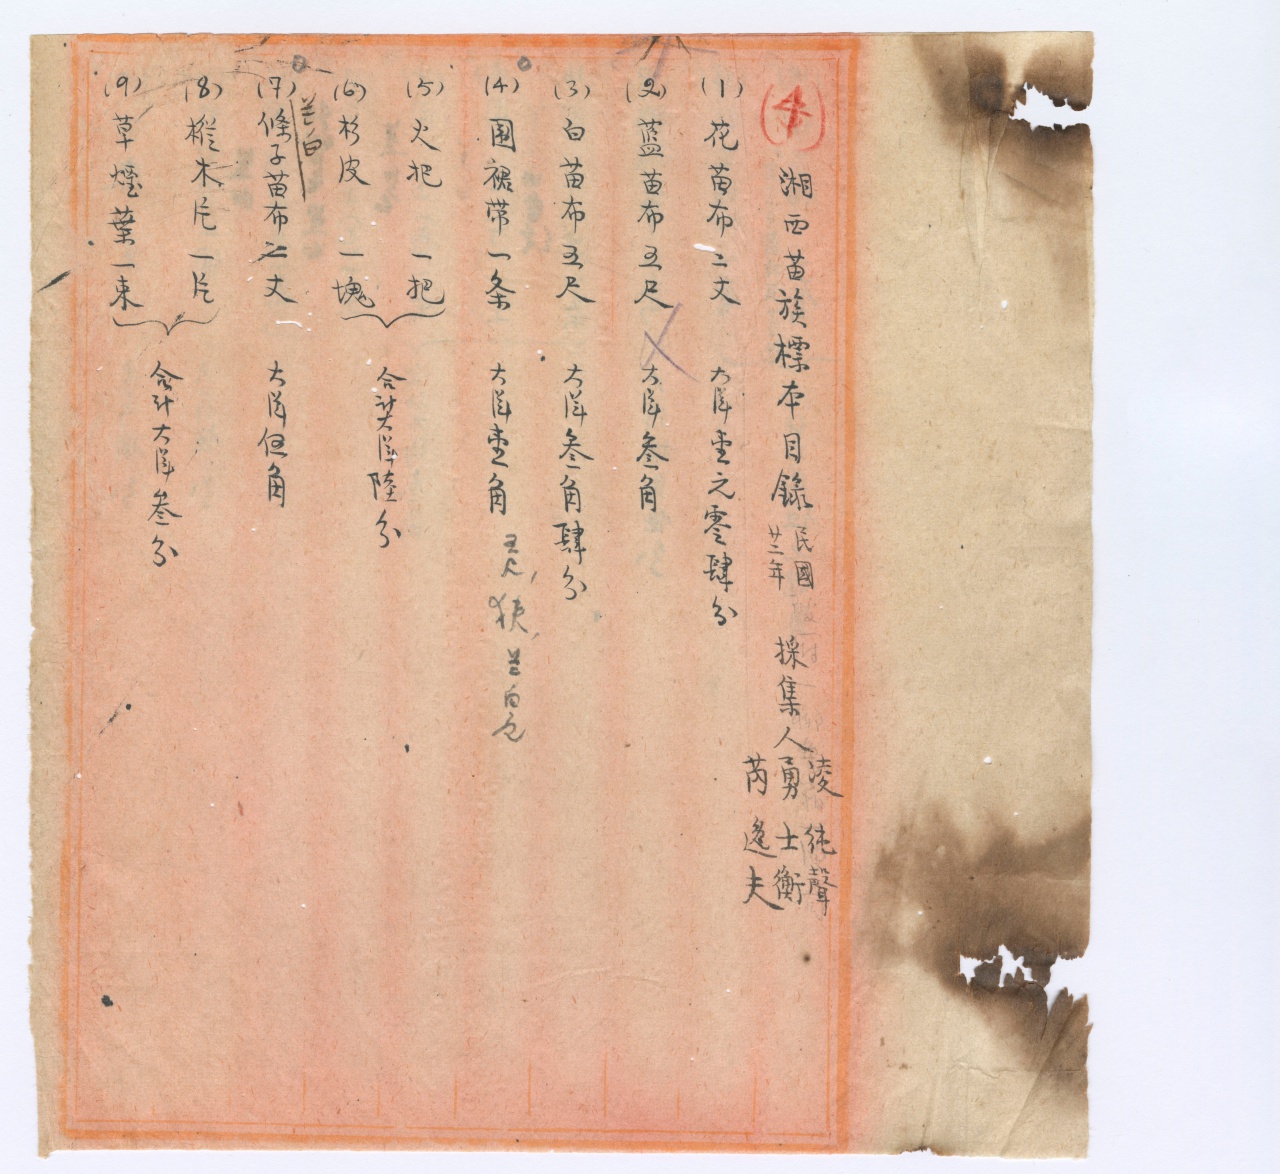 湘西苗族標本目錄 民國廿二年 採集人 凌純聲 勇士衡 芮逸夫
(1) 花苗布二丈 大洋壹元零肆分
(2) 藍苗布五尺 大洋叁角
(3) 白苗布五尺 大洋叁角肆分
(4) 围裙带一条 大洋壹角 五尺，狭，兰白色
(5) 火把 一把
(6) 杉皮 一塊
合計大洋陸分
(7) 條子苗布二丈 大洋伍角
兰白
(8) 樅木片一片
(9) 草煙葉一束
合計大洋叁分